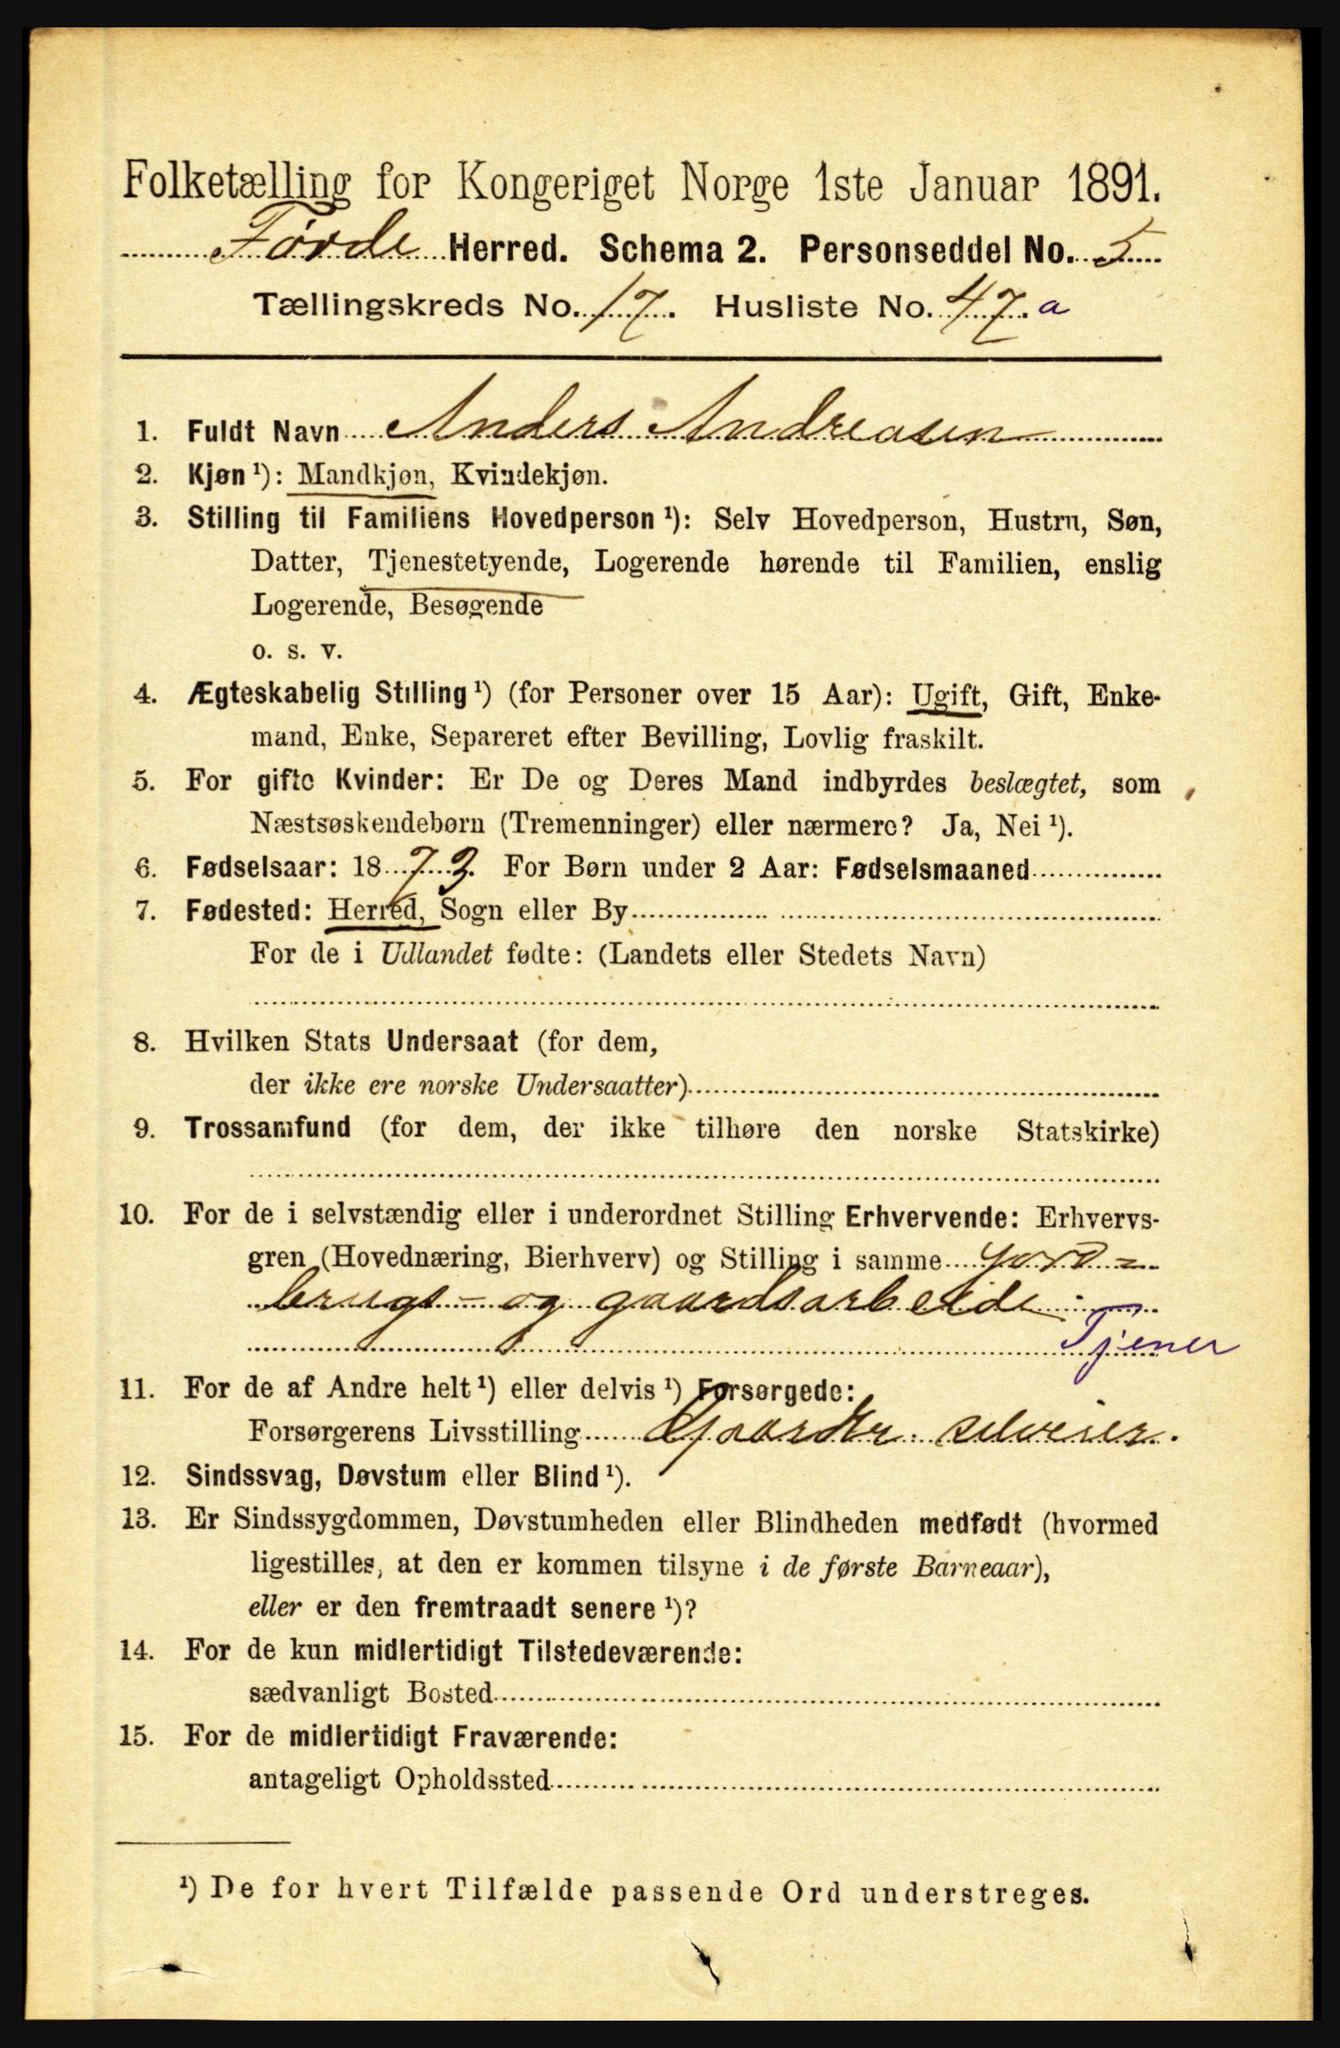 Folketælling for Kongeriget Norge 1ste Januar 1891.
Førde Herred. Schema 2. Personseddel No. 5
Tællingskreds No. 17. Husliste No. 47. a
1. Fuldt Navn Anders Andreasen
2. Kjøn¹): Mandkjøn, Kvindekjøn.
3. Stilling til Familiens Hovedperson¹): Selv Hovedperson, Hustru, Søn,
Datter, Tjenestetyende, Logerende hørende til Familien, enslig
Logerende, Besøgende
o. s. v.
4. Ægteskabelig Stilling¹) (for Personer over 15 Aar): Ugift, Gift, Enke-
mand, Enke, Separeret efter Bevilling, Lovlig fraskilt.
5. For gifte Kvinder: Er De og Deres Mand indbyrdes beslægtet, som
Næstsøskendebørn (Tremenninger) eller nærmere? Ja, Nei¹).
6. Fødselsaar: 1873. For Børn under 2 Aar: Fødselsmaaned
7. Fødested: Herred, Sogn eller By
For de i Udlandet fødte: (Landets eller Stedets Navn)
8. Hvilken Stats Undersaat (for dem,
der ikke ere norske Undersaatter)
9. Trossamfund (for dem, der ikke tilhøre den norske Statskirke)
10. For de i selvstændig eller i underordnet Stilling Erhvervende: Erhvervs-
gren (Hovednæring, Bierhverv) og Stilling i samme Jord=
brugs- og gaardsarbeide
Tjener
11. For de af Andre helt¹) eller delvis¹) Forsørgede:
Forsørgerens Livsstilling Gaardbr. selveier.
12. Sindssvag, Døvstum eller Blind¹).
13. Er Sindssygdommen, Døvstumheden eller Blindheden medfødt (hvormed
ligestilles, at den er kommen tilsyne i de første Barneaar),
eller er den fremtraadt senere¹)?
14. For de kun midlertidigt Tilstedeværende:
sædvanligt Bosted
15. For de midlertidigt Fraværende:
antageligt Opholdssted
¹) De for hvert Tilfælde passende Ord understreges.